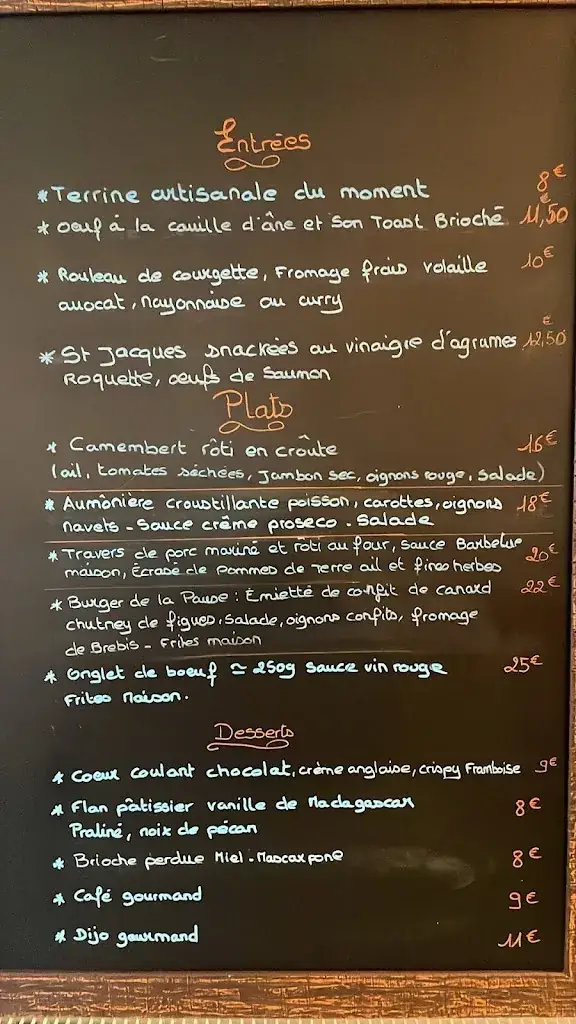 Entrées
* Terrine artisanale du moment 8€
* Oeuf à la couille d'âne et Son Toast Brioché 11,50€
* Rouleau de courgette, Fromage frais volaille 10€
avocat, mayonnaise au curry
* St Jacques snackées au vinaigre d'agrumes 12,50€
Roquette, oeufs de Saumon
Plats
* Camembert rôti en croûte 16€
(ail, tomates séchées, Jambon sec, oignons rouge, Salade)
* Aumônière croustillante poisson, carottes, oignons 18€
navets - Sauce crème proseco - Salade
* Travers de porc mariné et rôti au four, Sauce Barbecue 20€
maison, Écrasé de pommes de Terre ail et fines herbes
* Burger de la Pause : Émietté de confit de canard 22€
chutney de figues, Salade, oignons confits, fromage
de Brebis - Frites maison
* Onglet de boeuf ≃ 250g Sauce vin rouge 25€
Frites Maison.
Desserts
* Coeur coulant chocolat, crème anglaise, crispy Framboise 9€
* Flan pâtissier vanille de Madagascar 8€
Praliné, noix de pécan
* Brioche perdue Miel - Mascarpone 8€
* Café gourmand 9€
* Dijo gourmand 11€